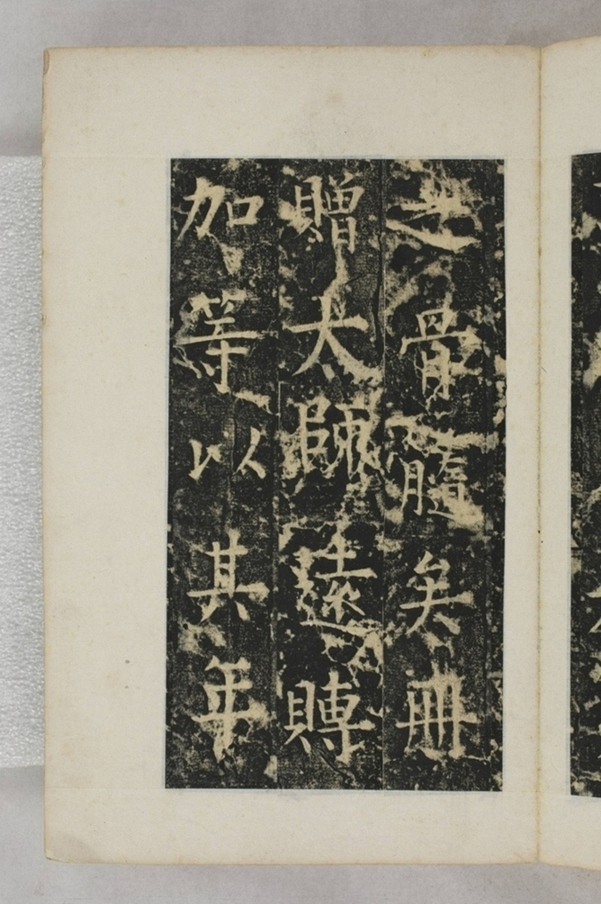 之骨髓矣冊
贈太師遠賻
加等以其年